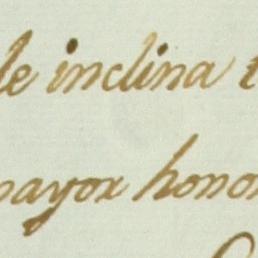 le inclina
mayor honor